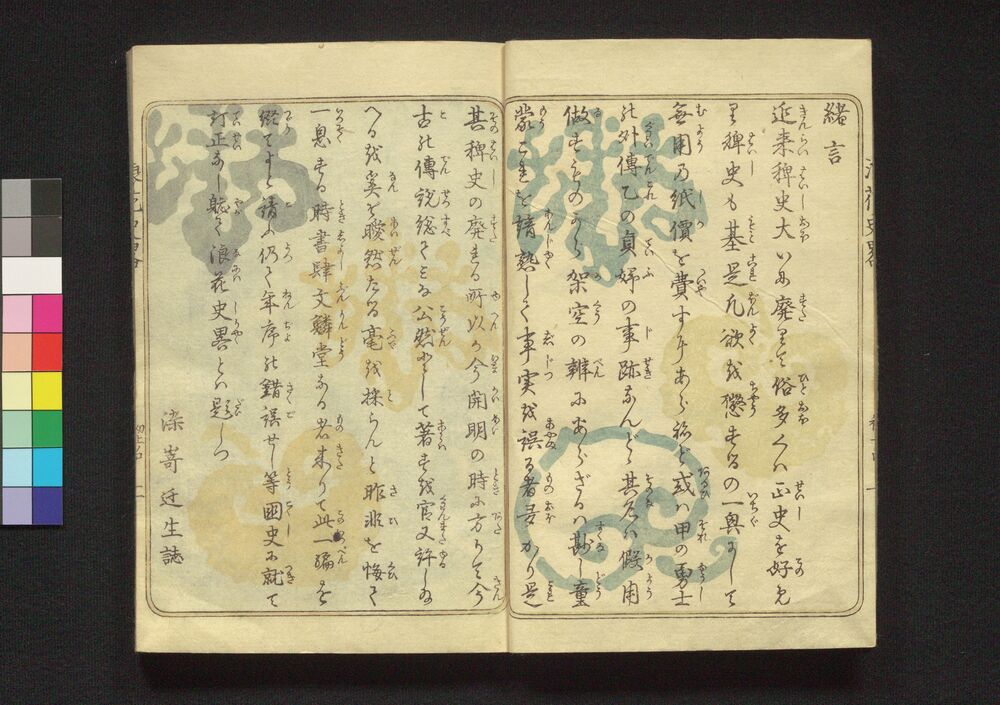 緒言
近来稗史大いに廃りて俗多くハ正史を好め
り稗史も基是凡欲を懲すの一輿にして
無用の紙價を費すにあらねど或ハ甲の勇士
の外傳乙の貞婦の事跡なんどゝ其名ハ假用
做すものから架空の辨にあらざるハ尠し童
蒙これを諳熟して事実を誤る者多かり是
其稗史の廃るゝ所以か今開明の時に方りて今
古の傳説総てみな公然として著すを官又許し給
へるを奚ぞ曖然たる毫を採らんと昨非を悔て
一息する時書肆文麟堂なる者来りて此一編を
綴てよと請ふ仍て年序の錯誤せし等国史に就て
訂正なし躰て浪花史畧とハ題しつ
迂生誌